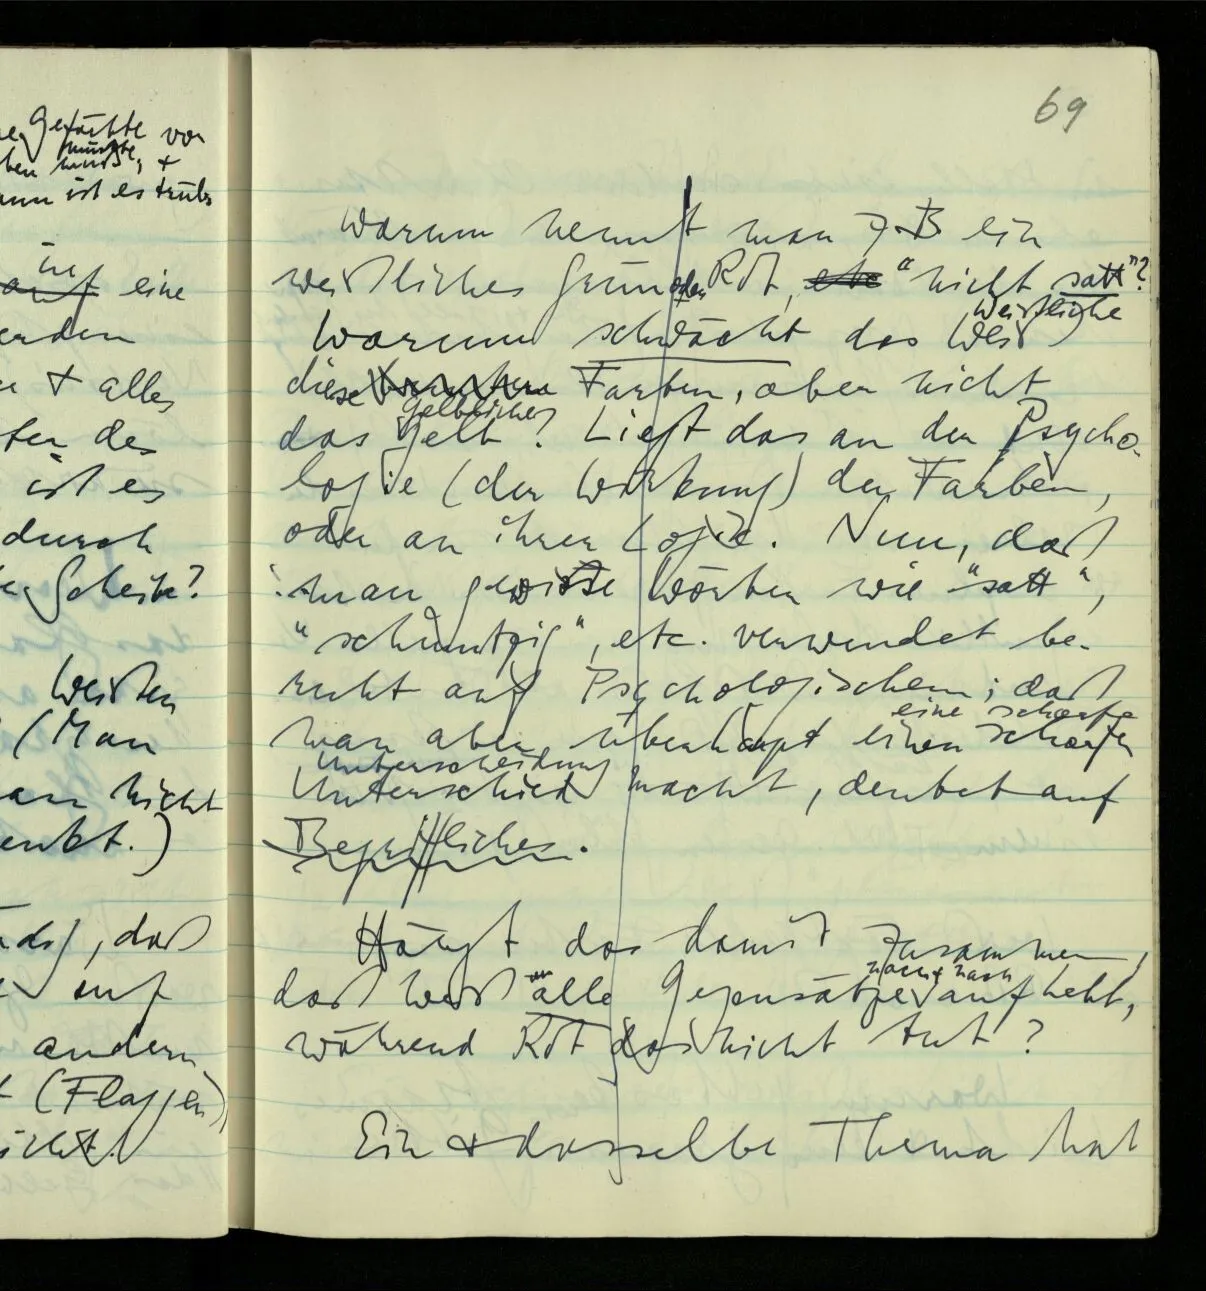 Gefärbte von
müßte, +
muß
ist es trüb
in
auf eine
erden
+ alles
ter des
ist es
durch
Scheibe?
Weißen
(Man
man nicht
enkt.)
, daß
auf
andern
(Flaggen)
69
Warum nennt man z B ein
weißliches Grün oder Rot, etc "nicht satt"?
weißliche
Warum schwächt das Weiß
diese Farben, aber nicht
gelbliche
das Gelb? Liegt das an der Psycho-
logie (der Wirkung) der Farben,
oder an ihrer Logik. Nun, daß
man gewisse Wörter wie "satt",
"schmutzig", etc. verwendet be-
ruht auf Psychologischem; daß
eine scharfe
man aber überhaupt einen scharfen
Unterscheidung
Unterschied macht, deutet auf
Begriffliches.
Hängt das damit zusammen,
nach + nach
daß Weiß alle Gegensätze aufhebt,
während Rot das nicht tut?
Ein + dasselbe Thema hat